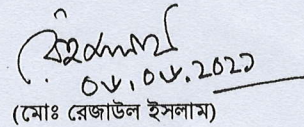 ০৮.০৮.২০২১
(মোঃ রেজাউল ইসলাম)